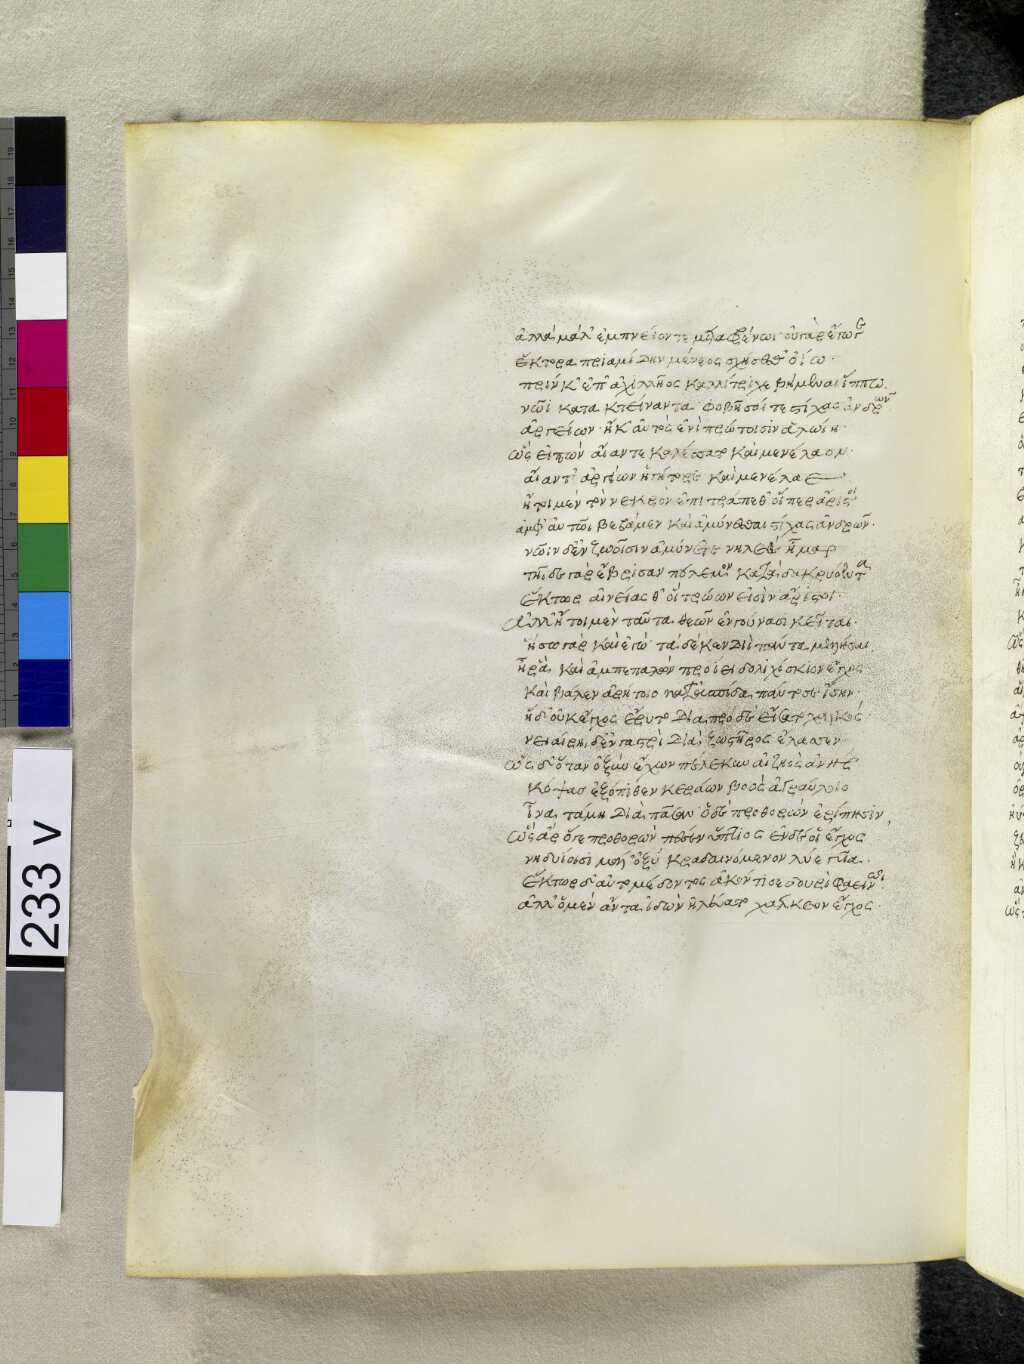 ἀλλὰ μάλ' ἐμπνείοντε μεταφρένωι· οὐ γὰρ ἔγωγε
ἕκτορα πριαμίδην μένεος σχήσεσθ' ὀΐω·
πρίν κ' ἐπ' ἀχιλλῆος καλλίτριχε βήμεναι ἵππω.
νῶϊ κατακτείναντα· φοβῆσαί τε στίχας ἀνδρῶν
ἀργείων· ἤ κ' αὐτὸς ἐνὶ πρώτοισιν ἁλώιη·
ὣς εἰπὼν αἴαντε καλέσσατο καὶ μενέλαον·
αἴαντ' ἀργείων ἡγήτορε καὶ μενέλαε
ἤτοι μὲν τὸν νεκρὸν ἐπιτράπεθ' οἵπερ ἄριστοι
ἀμφ' αὐτῶι βεβάμεν καὶ ἀμύνεσθαι στίχας ἀνδρῶν·
νῶϊν δὲ ζωοῖσιν ἀμύνετε νηλεὲς ἦμαρ
τῆιδε γὰρ ἔβρισαν πόλεμον κάτα δακρυόεντα
ἕκτωρ αἰνείας θ' οἳ τρώων εἰσὶν ἄριστοι·
ἀλλ' ἤτοι μὲν ταῦτα θεῶν ἐν γούνασι κεῖται·
ἥσω γὰρ καὶ ἐγώ· τὰ δέ κεν διὶ πάντα μελήσει
ἦ ῥα, καὶ ἀμπεπαλὼν προΐει δολιχόσκιον ἔγχος
καὶ βάλεν ἀρήτοιο κατ' ἀσπίδα πάντοσ' ἐΐσην·
ἡ δ' οὐκ ἔγχος ἔρυτο διὰ προ δὲ εἴσατο χαλκός·
νειαίρηι δ' ἐν γαστρὶ διὰ ζωστῆρος ἔλασσεν·
ὡς δ' ὅταν ὀξὺν ἔχων πέλεκυν αἰζήϊος ἀνὴρ
κόψας ἐξόπιθεν κεράων βοὸς ἀγραύλοιο
ἵνα τάμηι διὰ πᾶσαν· ὁ δὲ προθορὼν ἐρίπησιν,
ὣς ἄρ' ὅγε προθορὼν πέσεν ὕπτιος ἐν δέ οἱ ἔγχος
νηδυίοισι μάλ' ὀξὺ κραδαινόμενον λύε γυῖα·
ἕκτωρ δ' αὐτομέδοντος ἀκόντισε δουρὶ φαεινῶι·
ἀλλ' ὁ μὲν ἄντα ἰδὼν ἠλεύατο χάλκεον ἔγχος·
233 v